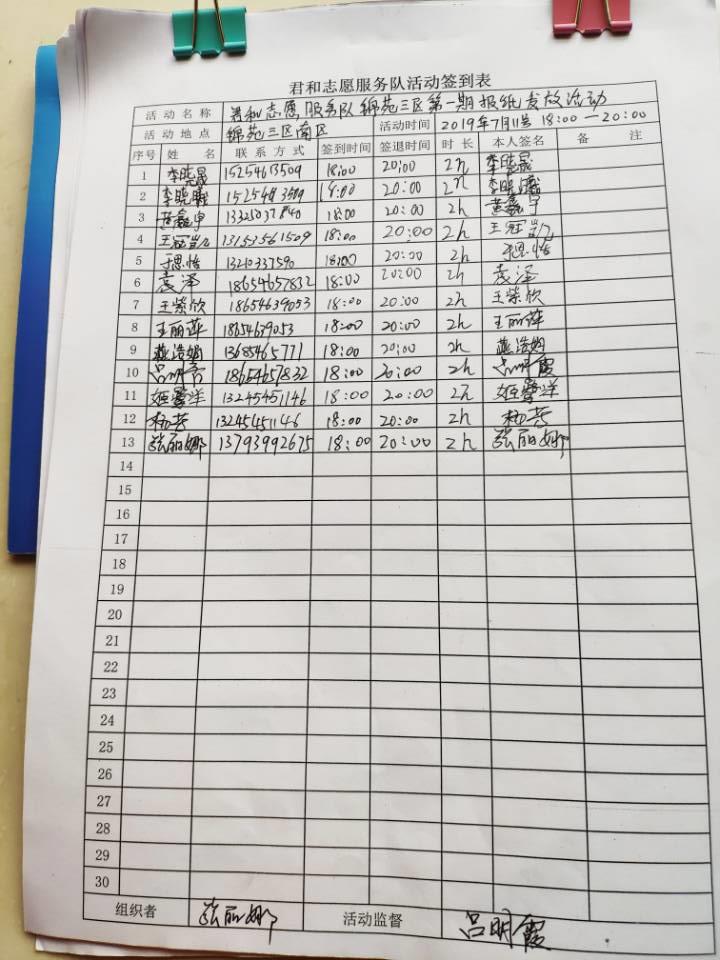 君和志愿服务队活动签到表
活动名称 君和志愿服务队锦苑三区第一期报纸发放活动
活动地点 锦苑三区南区 活动时间 2019年7月11号 18:00—20:00
序号 姓名 联系方式 签到时间 签退时间 时长 本人签名 备注
1 李晓晟 15254613509 18:00 20:00 2h 李晓晟
2 李晓曦 15254613509 18:00 20:00 2h 李晓曦
3 黄鑫宇 18:00 20:00 2h 黄鑫宇
4 王冠凯 13153561509 18:00 20:00 2h 王冠凯
5 于思怡 13210337590 18:00 20:00 2h 于思怡
6 袁泽 18654657832 18:00 20:00 2h 袁泽
7 王荣欣 18654639053 18:00 20:00 2h 王荣欣
8 王丽萍 18654639053 18:00 20:00 2h 王丽萍
9 燕浩娟 13685465771 18:00 20:00 2h 燕浩娟
10 吕明霞 18654657832 18:00 20:00 2h 吕明霞
11 13245451146 18:00 20:00 2h
12 杨芳 13245451146 18:00 20:00 2h 杨芳
13 张丽娜 13793992675 18:00 20:00 2h 张丽娜
14
15
16
17
18
19
20
21
22
23
24
25
26
27
28
29
30
组织者 张丽娜 活动监督 吕明霞